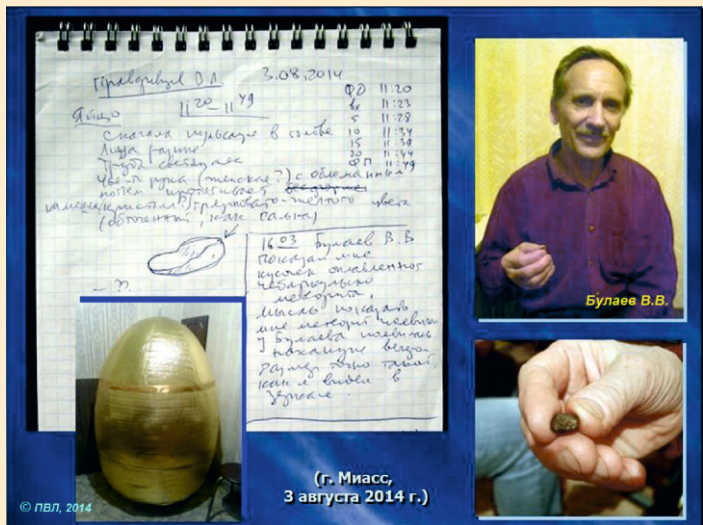 Правдивцев В.Л. 3.08.2014
Яйцо
11²⁰ – 11⁴⁹
ФО 11:20
вх 11:23
5 11:28
10 11:34
15 11:39
20 11:44
ФП 11:49
Сначала пульсация в голове
Лица разные
Труба светящаяся
Чья-то рука (женская?) с обломанным
ногтем протягивает
камешек (кристалл?) грязновато-жёлтого цвета
(обточенный, как галька)
16 03 Булаев В.В
показал мне
кусочек оплавленног
Чебаркульско
метеорита,
мысль показать
мне метеорит
у Булаева
накануне вечером
Размер точно такой,
как я видел в
зеркале.
Булаев В.В.
(г. Миасс,
3 августа 2014 г.)
© ПВЛ, 2014